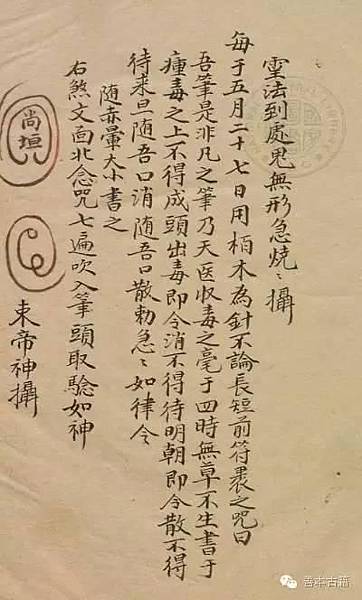 霊法到處鬼無形急燒〻攝
每于五月二十七日用栢木為針不論長短前符裹之咒曰
吾筆是非凡之筆乃天医收毒之毫于四時無草不生書于
瘇毒之上不得成頭出毒即令消不得待明朝即令散不得
待来旦随吾口消随吾口散勅急〻如律令
随赤暈大小書之
右煞文面北念咒七遍吹入筆頭取驗如神
尚垣
東帝神攝
善本古籍